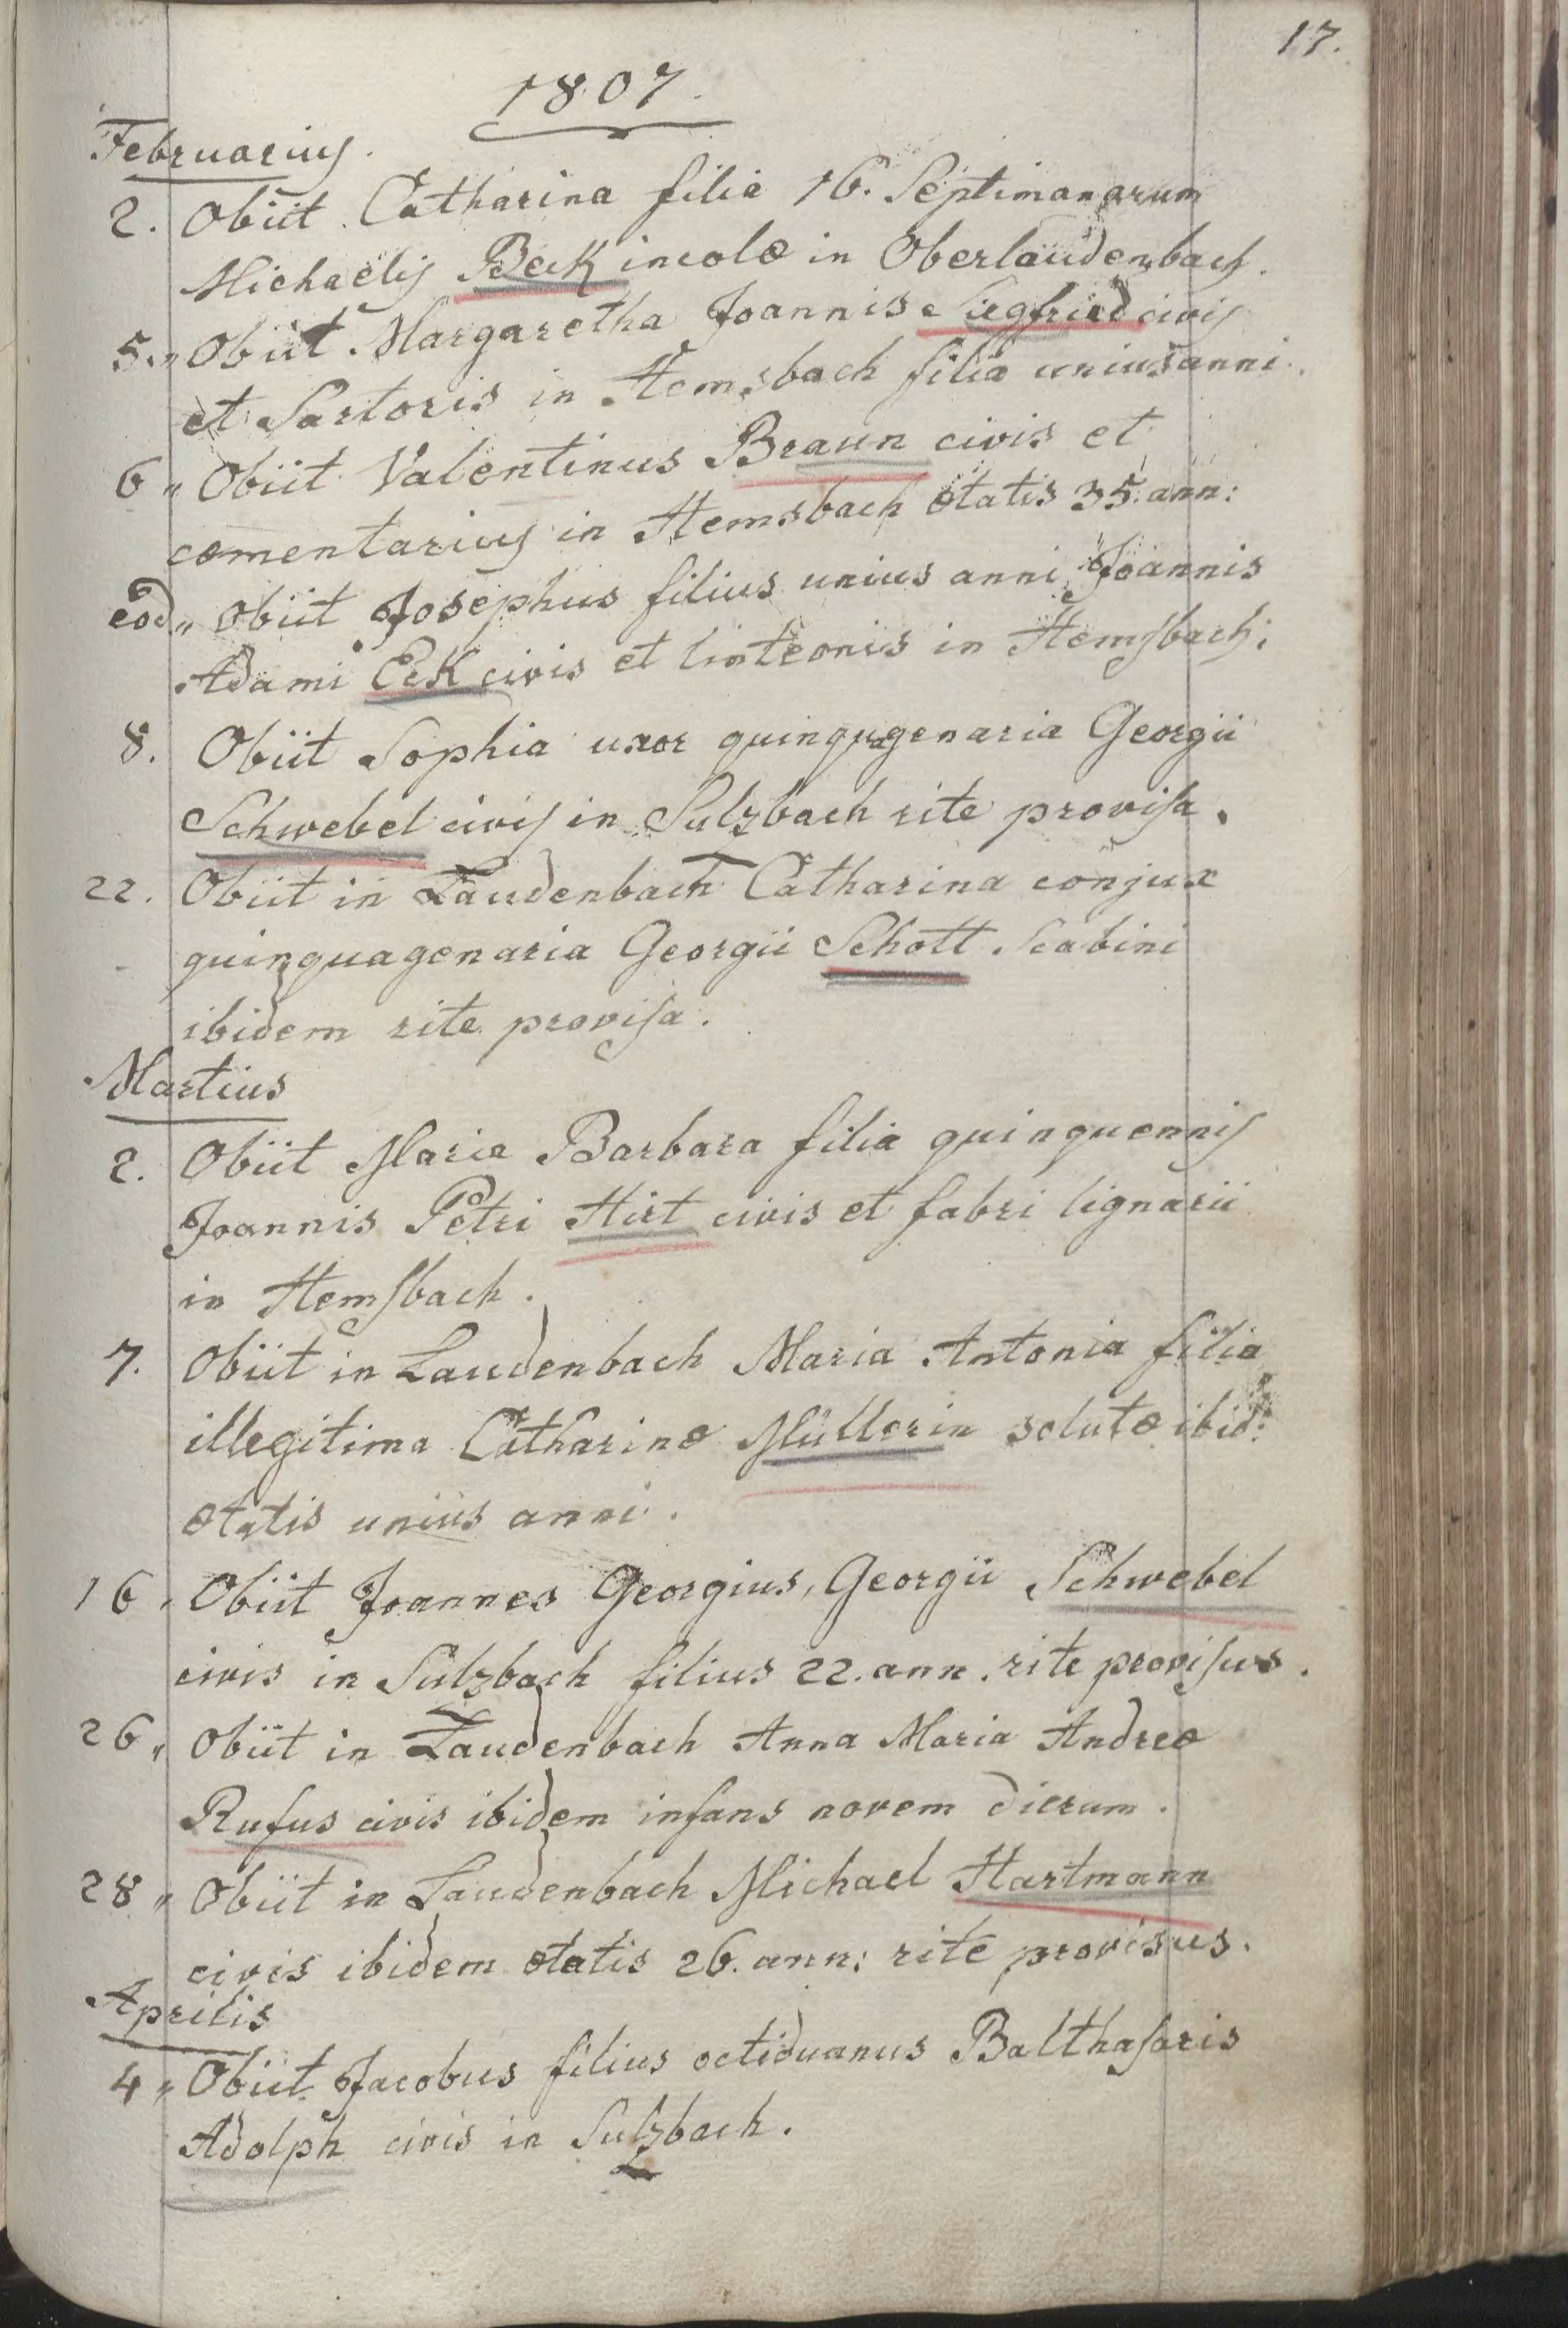 17.
1807.
Februarius.
2. Obiit Catharina filia 16. Septimanarum
Michaelis Beck incolæ in Oberlaudenbach.
5. „ Obiit Margaretha Joannis Siegfried civis
et Sartoris in Hemsbach filia unius anni.
6 „ Obiit Valentinus Braun civis et
cæmentarius in Hemsbach ætatis 35. ann:
eod „ obiit Josephus filius unius anni Joannis
Adami Eck civis et linteonis in Hemsbach;
8. Obiit Sophia uxor quinquagenaria Georgii
Schwebel civis in Sulzbach rite provisa.
22. Obiit in Laudenbach Catharina conjux
quinquagenaria Georgii Schott Scabini
ibidem rite provisa.
Martius
2. Obiit Maria Barbara filia quinquennis
Joannis Petri Hirt civis et fabri lignarii
in Hemsbach.
7. Obiit in Laudenbach Maria Antonia filia
illegitima Catharinæ Müllerin solutæ ibid:
ætatis unius anni.
16 „ Obiit Joannes Georgius, Georgii Schwebel
civis in Sulzbach filius 22. ann. rite provisus.
26 „ Obiit in Laudenbach Anna Maria Andreæ
Rufus civis ibidem infans novem dierum.
28 „ Obiit in Laudenbach Michael Hartmann
civis ibidem ætatis 26. ann: rite provisus.
Aprilis
4 „ Obiit Jacobus filius octiduanus Balthasaris
Adolph civis in Sulzbach.